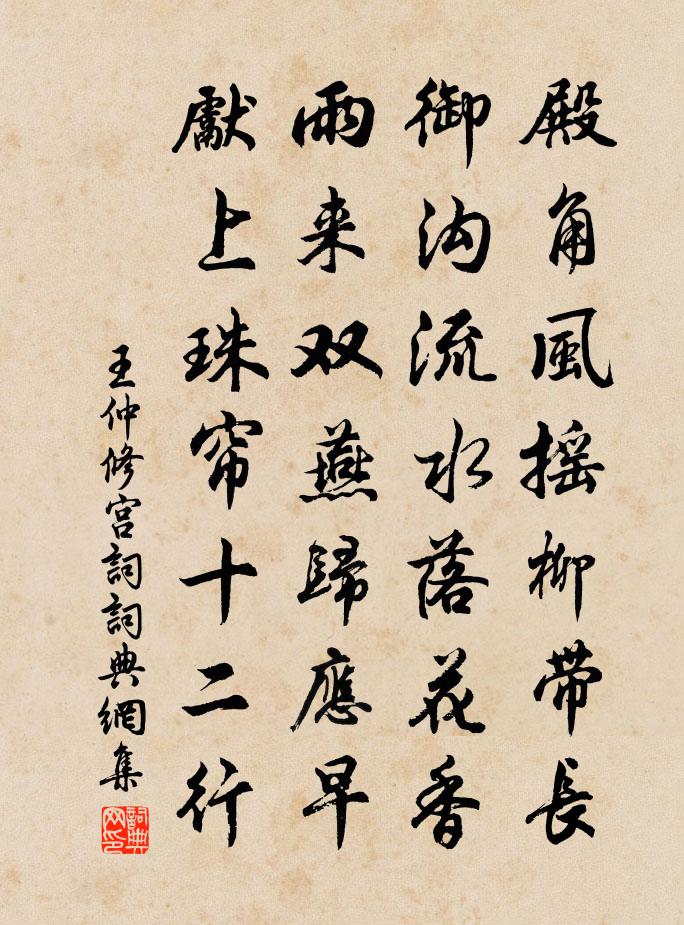 殿角風摇柳帶長
御沟流水落花香
雨来双燕歸應早
獻上珠帘十二行
王仲修宫詞詞典網集
詞典网印